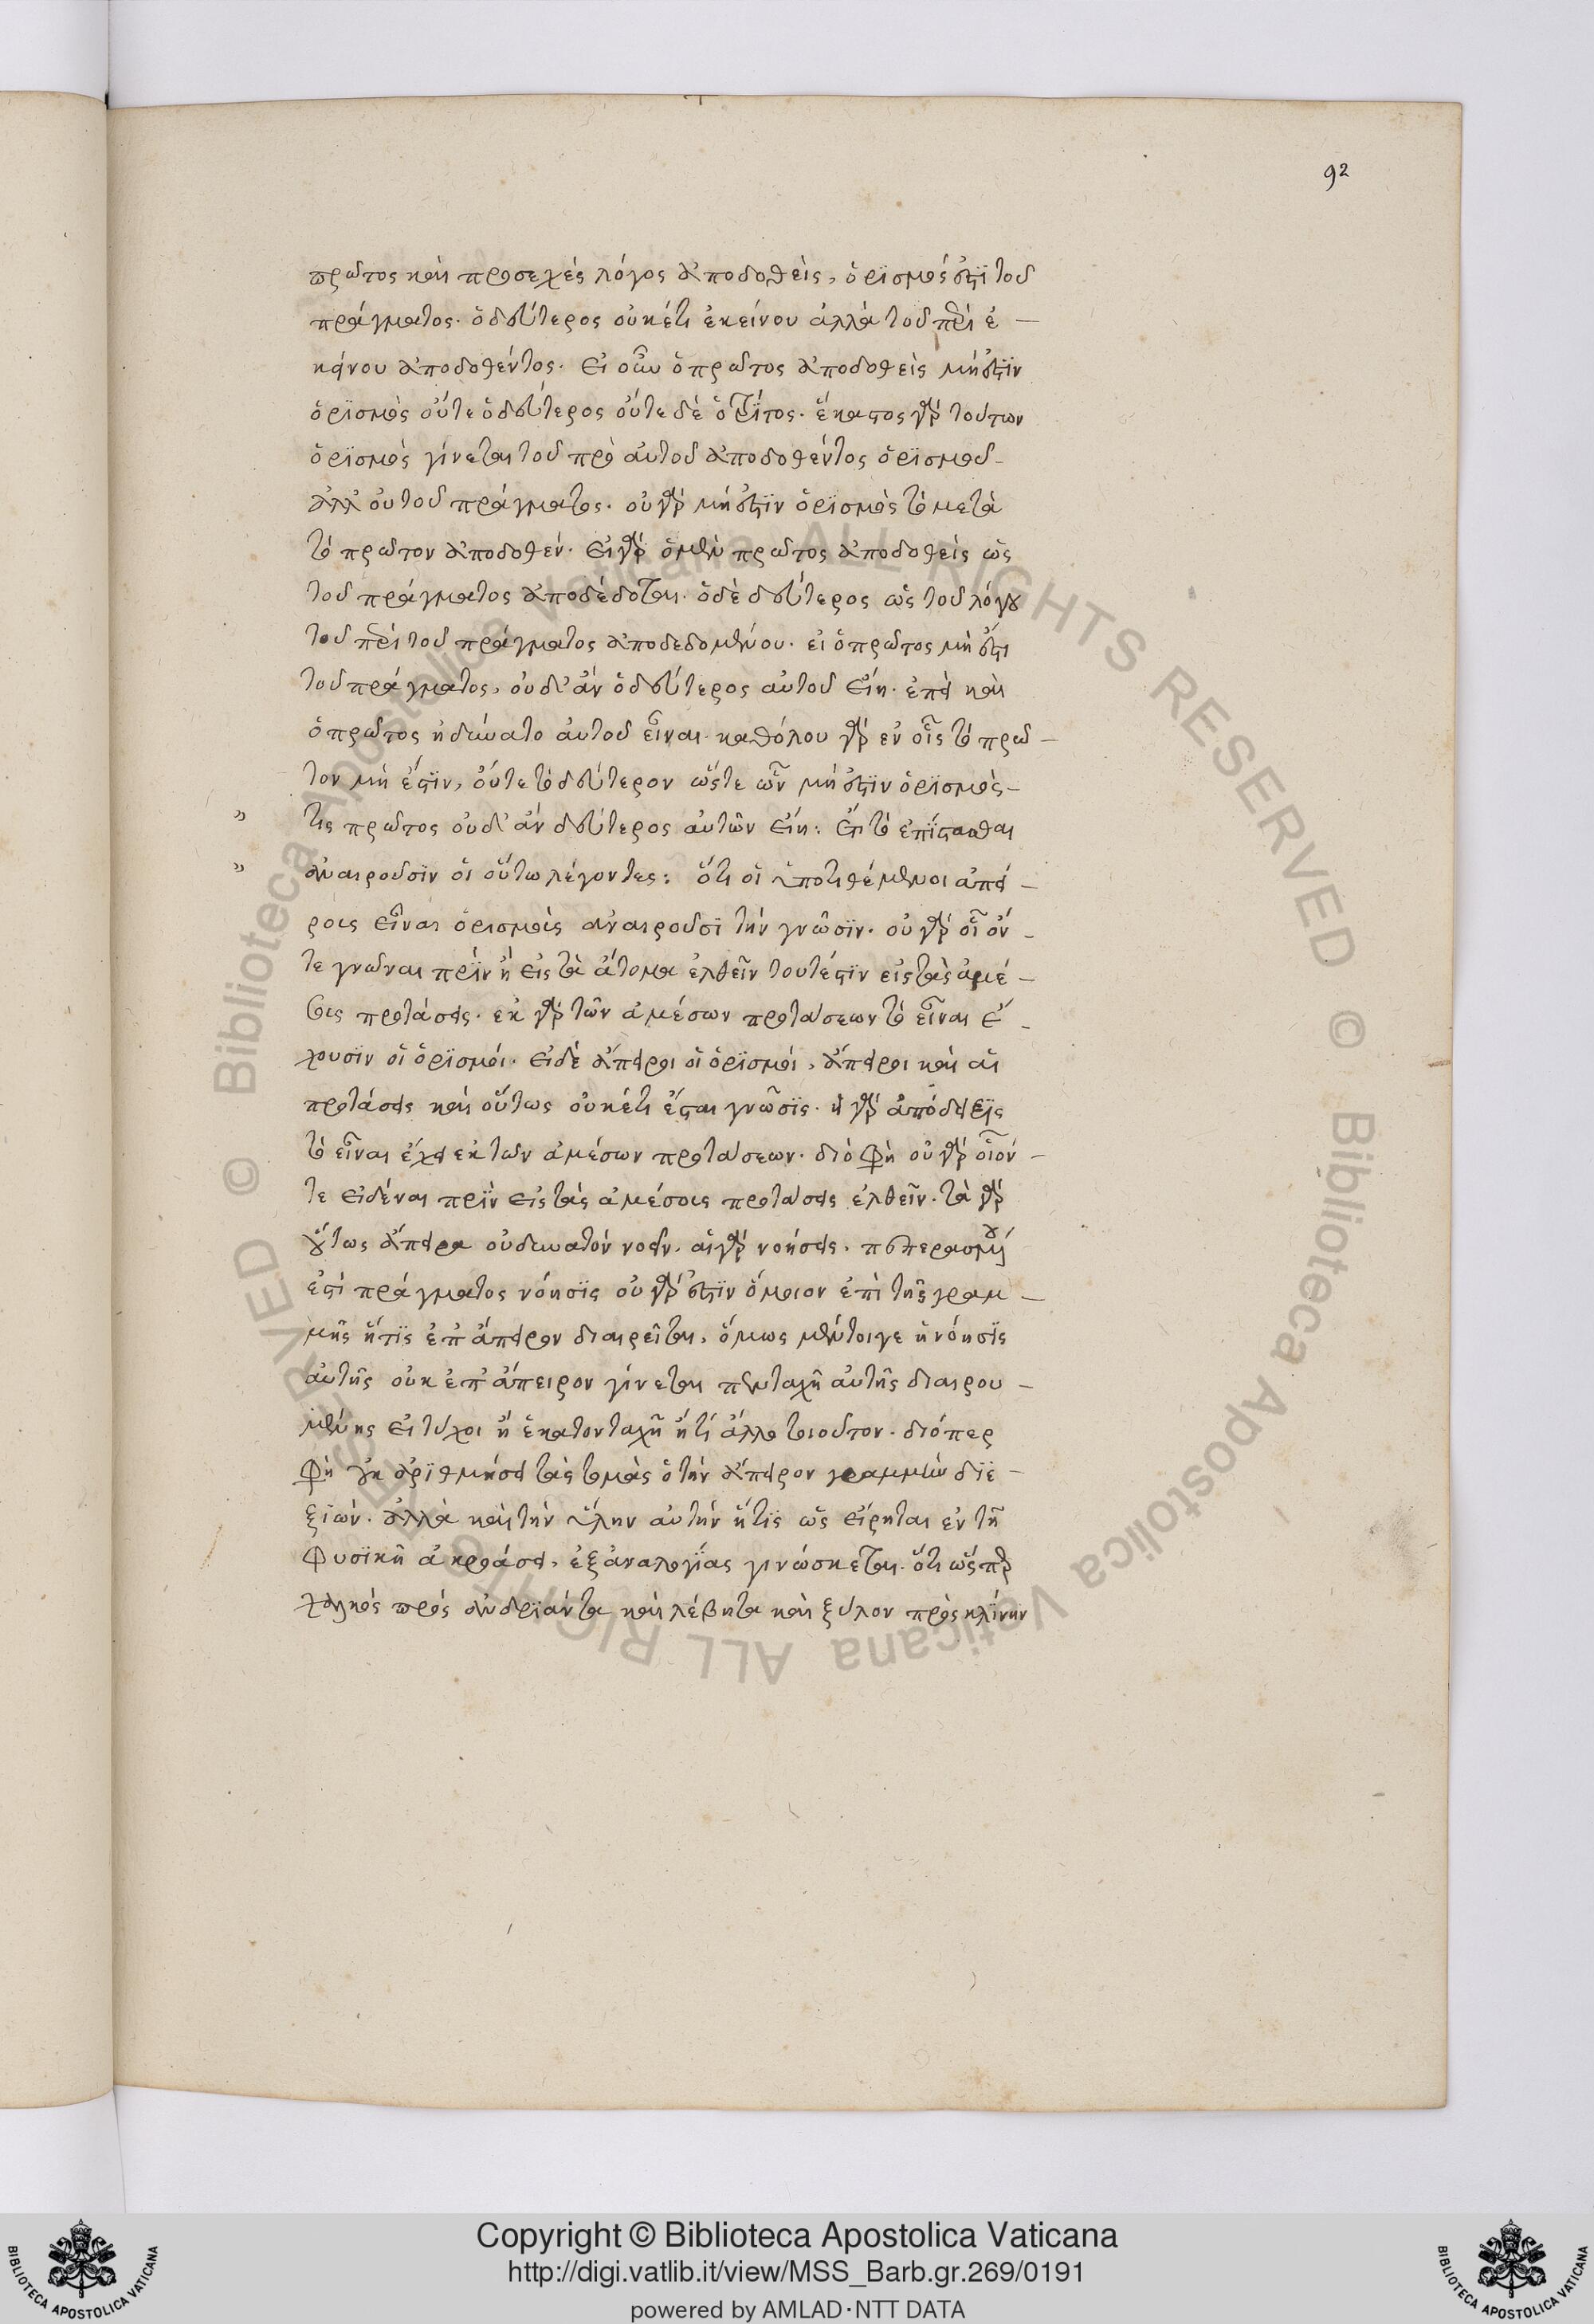 92
πρῶτος καὶ προσεχὲς λόγος ἀποδοθεὶς, ὁρϊσμός ἐστϊ τοῦ
πράγματος. ὁ δεύτερος οὐκέτι ἐκείνου ἀλλὰ τοῦ περὶ ἐ-
κείνου ἀποδοθέντος. εἰ οὖν ὁ πρῶτος ἀποδοθεὶς μή ἐστϊν
ὁρϊσμὸς οὔτε ὁ δεύτερος οὔτε δὲ ὁ τρίτος. ἕκαστος γὰρ τούτων
ὁρϊσμὸς γίνεται τοῦ πρὸ αὐτοῦ ἀποδοθέντος ὁρϊσμοῦ-
ἀλλ' οὐ τοῦ πράγματος. οὐ γὰρ μή ἐστϊν ὁρϊσμὸς τὸ μετὰ
τὸ πρῶτον ἀποδοθέν. εἰ γὰρ ὁ μὲν πρῶτος ἀποδοθεὶς ὡς
τοῦ πράγματος ἀποδέδοται. ὁ δὲ δεύτερος ὡς τοῦ λόγου
τοῦ περὶ τοῦ πράγματος ἀποδεδομένου. εἰ ὁ πρῶτος μὴ ἔστι
τοῦ πράγματος, οὐδ' ἂν ὁ δεύτερος αὐτοῦ εἴη. ἐπεὶ καὶ
ὁ πρῶτος ἠδύνατο αὐτοῦ εἶναι. καθόλου γὰρ ἐν οἷς τὸ πρῶ-
τον μὴ ἔστϊν, οὔτε τὸ δεύτερον ὥστε ὧν μή ἐστϊν ὁρϊσμὸς-
τις πρῶτος οὐδ' ἂν δεύτερος αὐτῶν εἴη: ἔτι τὸ ἐπίστασθαι
ἀναιροῦσϊν οἱ οὕτω λέγοντες: ὅτι οἱ ὑποτιθέμενοι ἀπεί-
ρους εἶναι ὁρισμοὺς ἀναιροῦσϊ τὴν γνῶσϊν. οὐ γὰρ οἷ όν-
τε γνῶναι πρϊν ἢ εἰς τὰ ἄτομα ἐλθεῖν τουτέστϊν εἰς τὰς ἀμέ-
σους προτάσεις. ἐκ γὰρ τῶν ἀμέσων προτάσεων τὸ εἶναι ἔ-
χουσϊν οἱ ὁρϊσμοί. εἰ δὲ ἄπειροι οἱ ὁρϊσμοί, ἄπειροι καὶ αἱ
προτάσεις καὶ οὕτως οὐκέτι ἔσται γνῶσϊς. ἡ γὰρ ἀπόδειξϊς
τὸ εἶναι ἔχει ἐκ τῶν ἀμέσων προτάσεων. διό φη οὐ γὰρ οἷόν-
τε εἰδέναι πρϊν εἰς τὰς ἀμέσους προτάσεις ἐλθεῖν. τὰ γὰρ
οὕτως ἄπειρα οὐ δυνατὸν νοεῖν. αἱ γὰρ νοήσεις. πεπερασμένου
ἐστὶ πράγματος νόησϊς οὐ γὰρ ἐστϊν ὅμοιον ἐπὶ τῆς γραμ-
μῆς ἥτϊς ἐπ' ἄπειρον διαιρεῖται, ὅμως μέντοιγε ἡ νόησϊς
αὐτῆς οὐκ ἐπ' ἄπειρον γίνεται πενταχῆ αὐτῆς διαιρου-
μένης εἰ τύχοι ἢ ἑκατονταχῆ ἤ τι ἄλλο τοιοῦτον. διόπερ
φη οὐκ ἀρϊθμήσει τὰς τομὰς ὁ τὴν ἄπειρον γραμμὴν διε-
ξϊών. ἀλλὰ καὶ τὴν ὕλην αὐτὴν ἥτϊς ὡς εἴρηται ἐν τῆ
Φυσϊκῆ ἀκροάσει, ἐξ ἀναλογίας γινώσκεται. ὅτι ὥσπερ
χαλκός πρὸς ἀνδρϊάντα καὶ λέβητα καὶ ξύλον πρὸς κλίνην
Copyright © Biblioteca Apostolica Vaticana
http://digi.vatlib.it/view/MSS_Barb.gr.269/0191
powered by AMLAD·NTT DATA